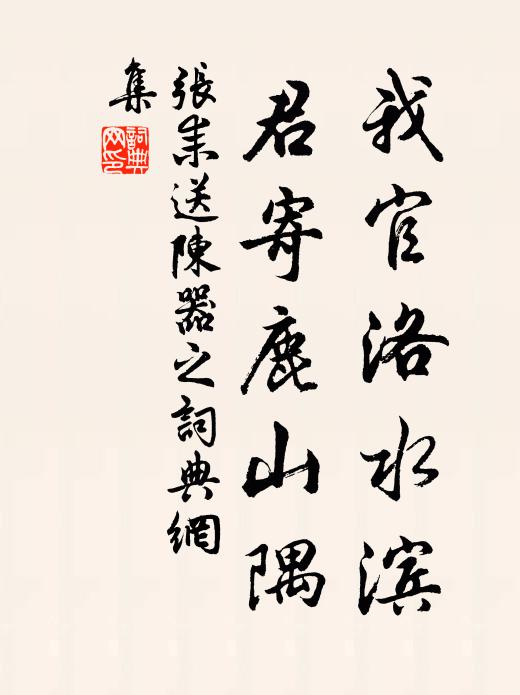 我官洛水滨
君寄鹿山隅
張耒送陳器之詞典網
集
詞典
网印